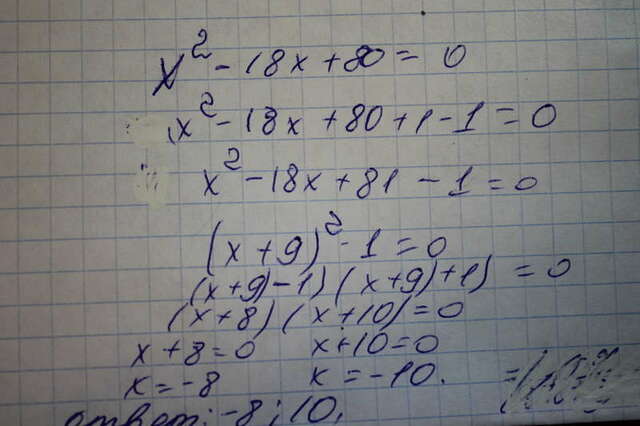 x² - 18x + 80 = 0
x² - 18x + 80 + 1 - 1 = 0
x² - 18x + 81 - 1 = 0
(x + 9)² - 1 = 0
(x+9)-1)(x+9)+1) = 0
(x+8)(x+10) = 0
x + 8 = 0 x+10=0
x = -8 x = -10.
ответ: -8; 10.